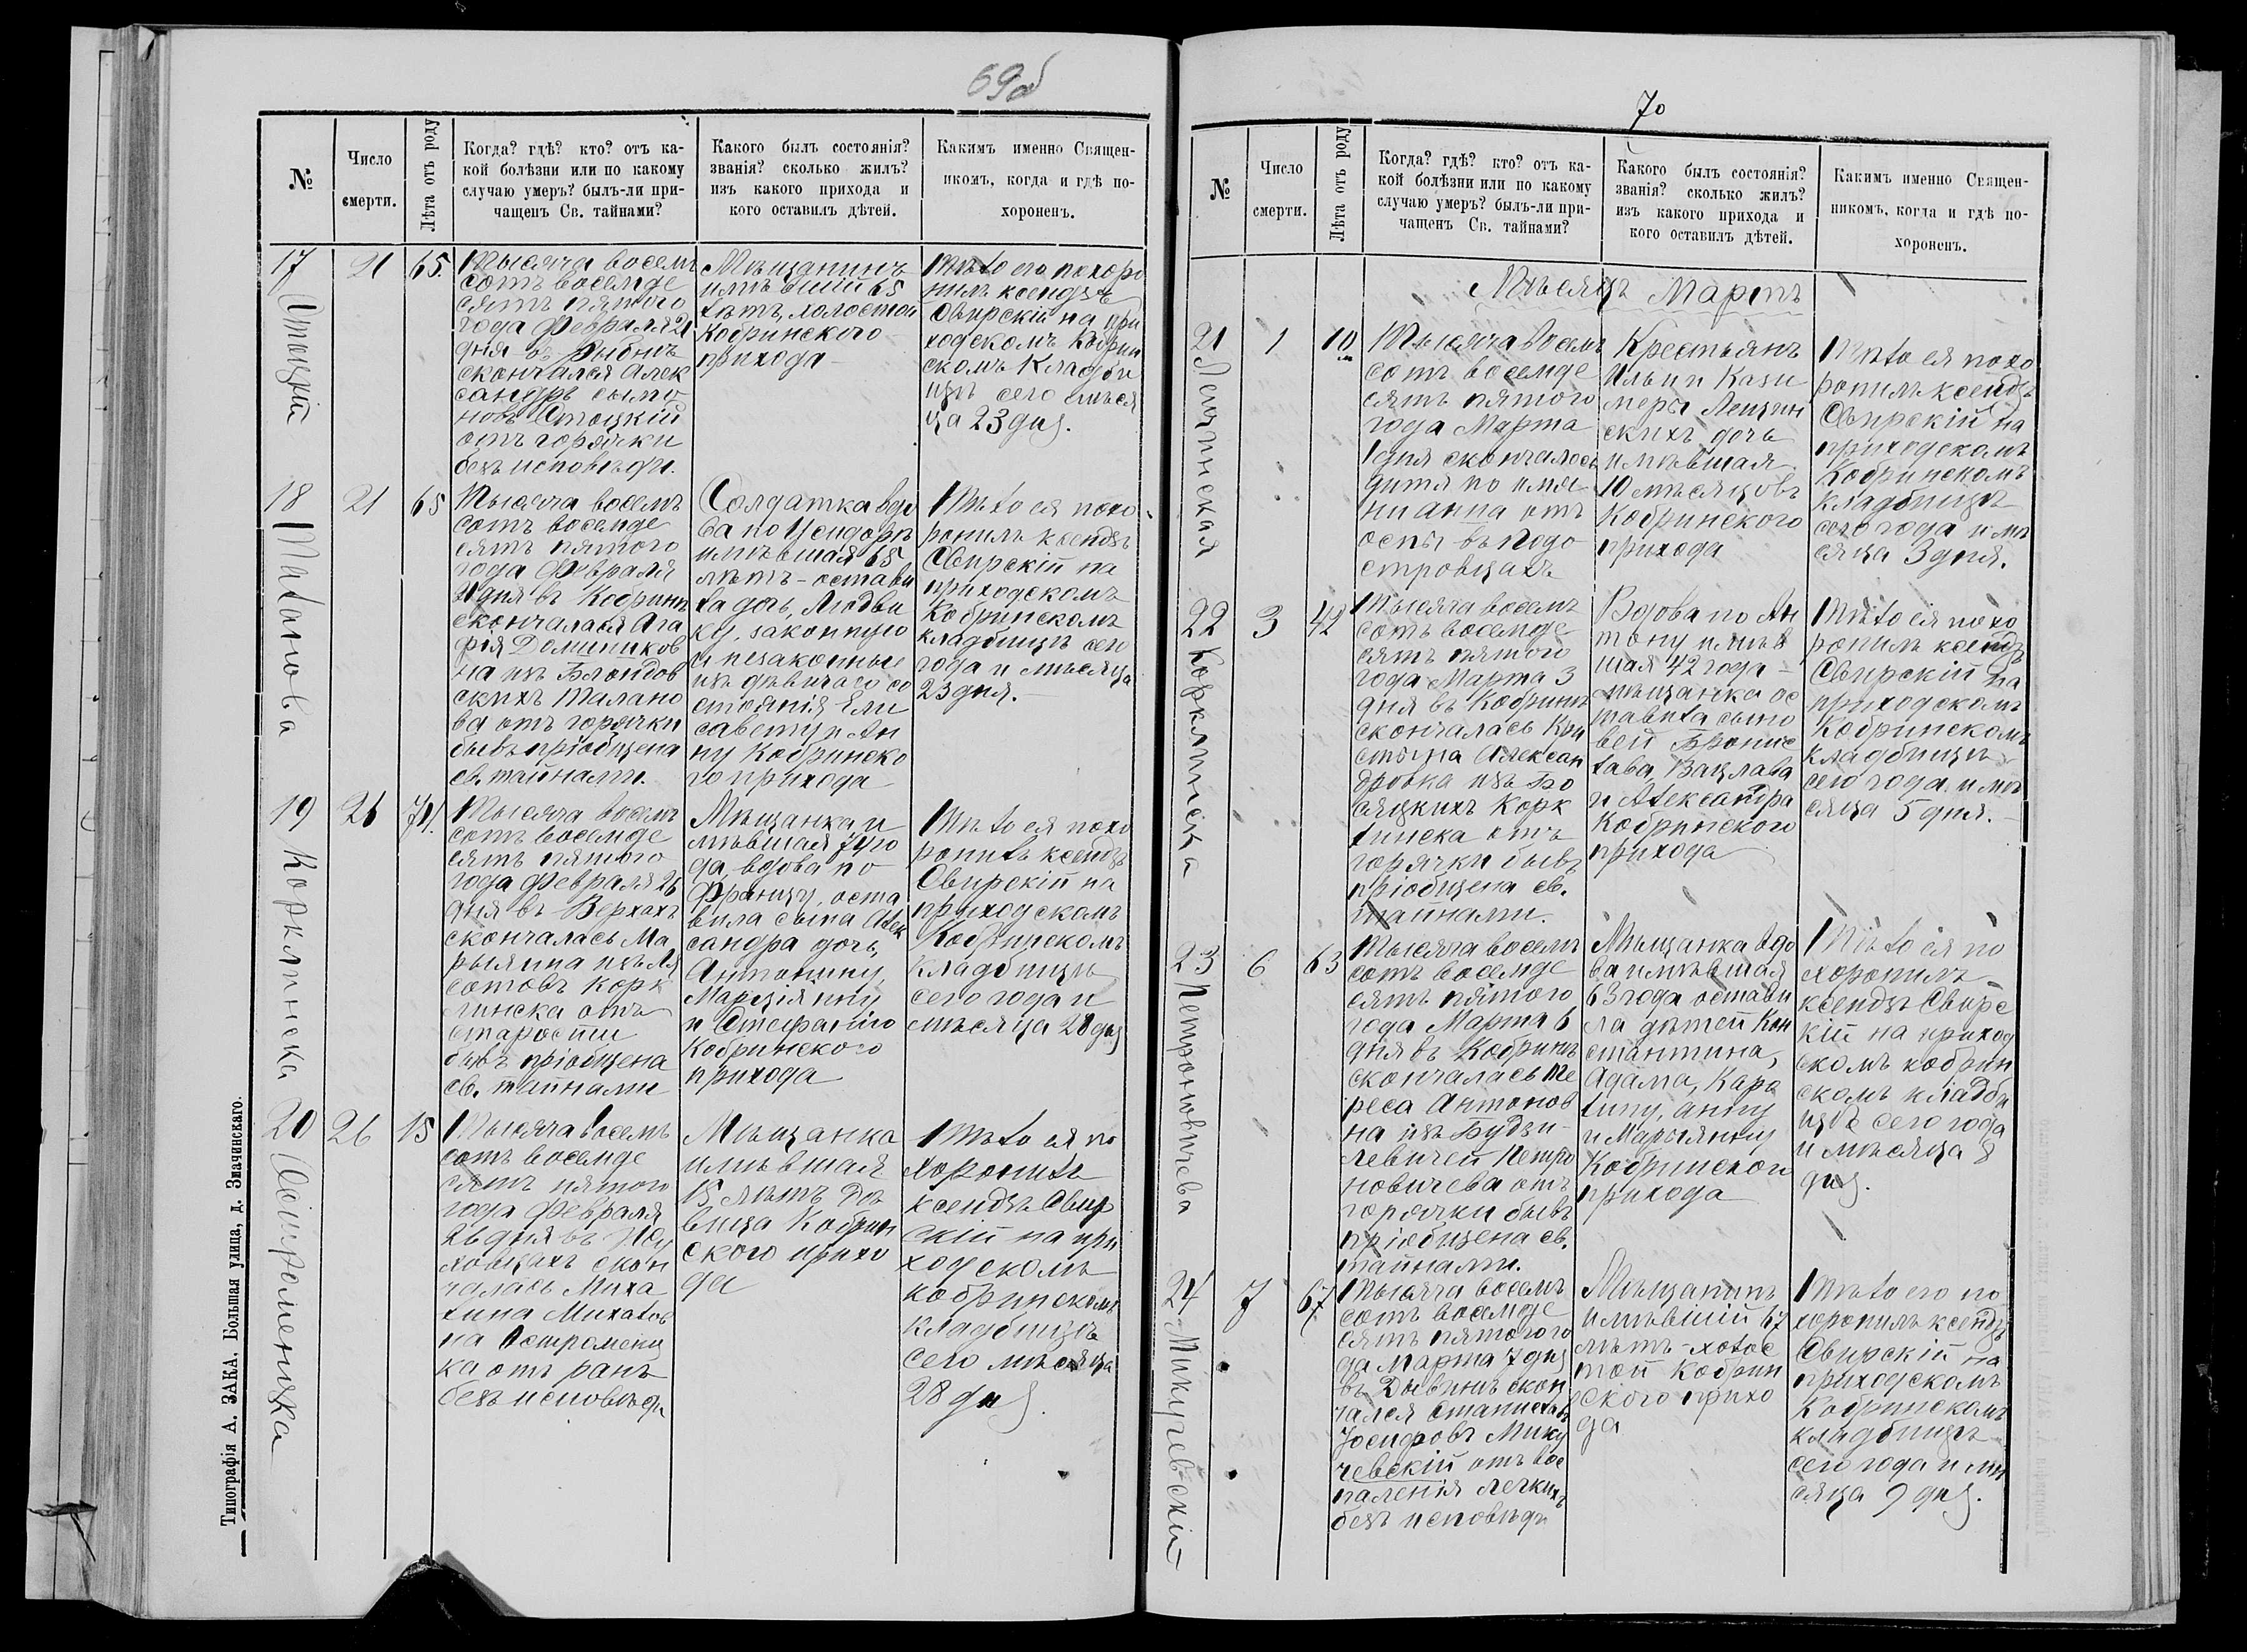 69об
№
Число
смерти.
Лѣта отъ роду
Когда? гдѣ? кто? отъ ка-
кой болѣзни или по какому
случаю умеръ? былъ-ли при-
чащенъ Св. тайнами?
Какого былъ состоянія?
званія? сколько жилъ?
изъ какого прихода и
кого оставилъ дѣтей.
Какимъ именно Священ-
никомъ, когда и гдѣ по-
хороненъ.
17
Стоцкій
21
65.
Тысяча восемь
сотъ восемде
сятъ пятого
года Февраля 21
дня въ
скончался Алек
сандръ сымо
новъ Стоцкій
отъ горячки
безъ исповѣди.
Мѣщанинъ
имѣвшій 65
лѣтъ, холостой
Кобринского
прихода
Тѣло его похоро
нилъ ксендзъ
Свирскій на при
ходскомъ Кобрин
скомъ Кладби
щѣ сего мѣся
ца 23 дня.
18
Таланова
21
65
Тысяча восемь
сотъ восемде
сятъ пятого
года Февраля
21 дня въ Кобринѣ
скончалася Ага
фія Домиников
на изъ Блондов
скихъ Талано
ва отъ горячки
бывъ пріобщена
св. тайнами.
Солдатка вдо
ва по
имѣвшая 65
лѣтъ - остави
ла дочь, Людви
ку, законную
и незаконные
изъ дѣвичаго со
стоянія, Ели
савету и Ан
ну Кобринско
го прихода
Тѣло ея похо
ронилъ ксендзъ
Свирскій на
приходскомъ
Кобринскомъ
кладбищѣ сего
года и мѣсяца
23 дня. -
19
Корклинска
26
74.
Тысяча восемь
сотъ восемде
сятъ пятого
года Февраля 26
дня въ Верхахъ
скончалась Ма
рыянна изъ
сотовъ Корк
линска отъ
старости
бывъ пріобщена
св. тайнами
Мѣщанка и
мѣвшая 74 го
да, вдова по
Францу, оста
вила сына Алек
сандра дочь,
Антонину,
Марціянну
и Стефанію
Кобринского
прихода
Тѣло ея похо
ронилъ ксендзъ
Свирскій на
приходскомъ
Кобринскомъ
кладбищѣ
сего года и
мѣсяца 28 дня
20
Остроменцка
26
15
Тысяча восемь
сотъ восемде
сятъ пятого
года Февраля
26 дня въ
ховцахъ скон
чалась Миха
лина Михалов
на Остроменц
ка отъ ранъ
безъ исповѣди
Мѣщанка
имѣвшая
15 лѣтъ дѣ
вица Кобрин
ского прихо
да
Тѣло ея по
хоронилъ
ксендзъ Свир
скій на при
ходскомъ
кобринскомъ
кладбищѣ
сего мѣсяца
28 дня.
Типографія А. ЗАКА, Большая улица, д. Значинскаго.
70
№
Число
смерти.
Лѣта отъ роду
Когда? гдѣ? кто? отъ ка-
кой болѣзни или по какому
случаю умеръ? былъ-ли при-
чащенъ Св. тайнами?
Какого былъ состоянія?
званія? сколько жилъ?
изъ какого прихода и
кого оставилъ дѣтей.
Какимъ именно Священ-
никомъ, когда и гдѣ по-
хороненъ.
Мѣсяцъ Мартъ
21
Лещинская
1
10 м
Тысяча восемь
сотъ восемде
сятъ пятого
года Марта
1 дня скончалось
дитя по имя
ни Анна отъ
оспы въ Подо
стровцахъ
Крестьянъ
Ильи и Кази
меры Лещин
скихъ дочь
имѣвшая
10 мѣсяцовъ
Кобринского
прихода
Тѣло ея похо
ронилъ ксендзъ
Свирскій на
приходскомъ
Кобринскомъ
Кладбищѣ
сего года и мѣ
сяца 3 дня.
22
Корклинска
3
42
Тысяча восемь
сотъ восемде
сятъ пятого
года Марта 3
дня въ Кобринѣ
скончалась Кри
стына Алексан
дровна изъ Бо
сяцкихъ Корк
линска отъ
горячки бывъ
пріобщена св.
тайнами.
Вдова по Ан
тону имѣв
шая 42 года -
мѣщанка ос
тавила сыно
вей Бронис
лава, Вацлава
и Александра
Кобринского
прихода
Тѣло ея похо
ронилъ ксендзъ
Свирскій на
приходскомъ
Кобринскомъ
кладбищѣ
сего года и мѣ
сяца 5 дня. -
23
Петроновичева
6
63
Тысяча восемь
сотъ восемде
сятъ пятого
года Марта 6
дня въ Кобринѣ
скончалась Те
реса Антонов
на изъ Будзи-
левичей Петро
новичева отъ
горячки бывъ
пріобщена св.
тайнами.
Мѣщанка вдо
ва имѣвшая
63 года остави
ла дѣтей Кон
стантина,
Адама, Каро
лину, анну
и Марыянну
Кобринского
прихода
Тѣло ея по
хоронилъ
ксендзъ Свирс
кій на приход
скомъ кобрин
скомъ кладби
щѣ сего года
и мѣсяца 8
дня.
24
Микучевскій
7
67
Тысяча восемь
сотъ восемде
сятъ пятого го
да Марта 7 дня
въ Дывинѣ скон
чался Станиславъ
Іосифовъ Мику
чевскій отъ вос
паленія легкихъ
безъ исповѣди
Мѣщанинъ
имѣвшій 67
лѣтъ - холос
той Кобрин
ского прихо
да
Тѣло его по
хоронилъ ксендзъ
Свирскій на
приходскомъ
Кобринскомъ
кладбищѣ
сего года и мѣ
сяца 9 дня.